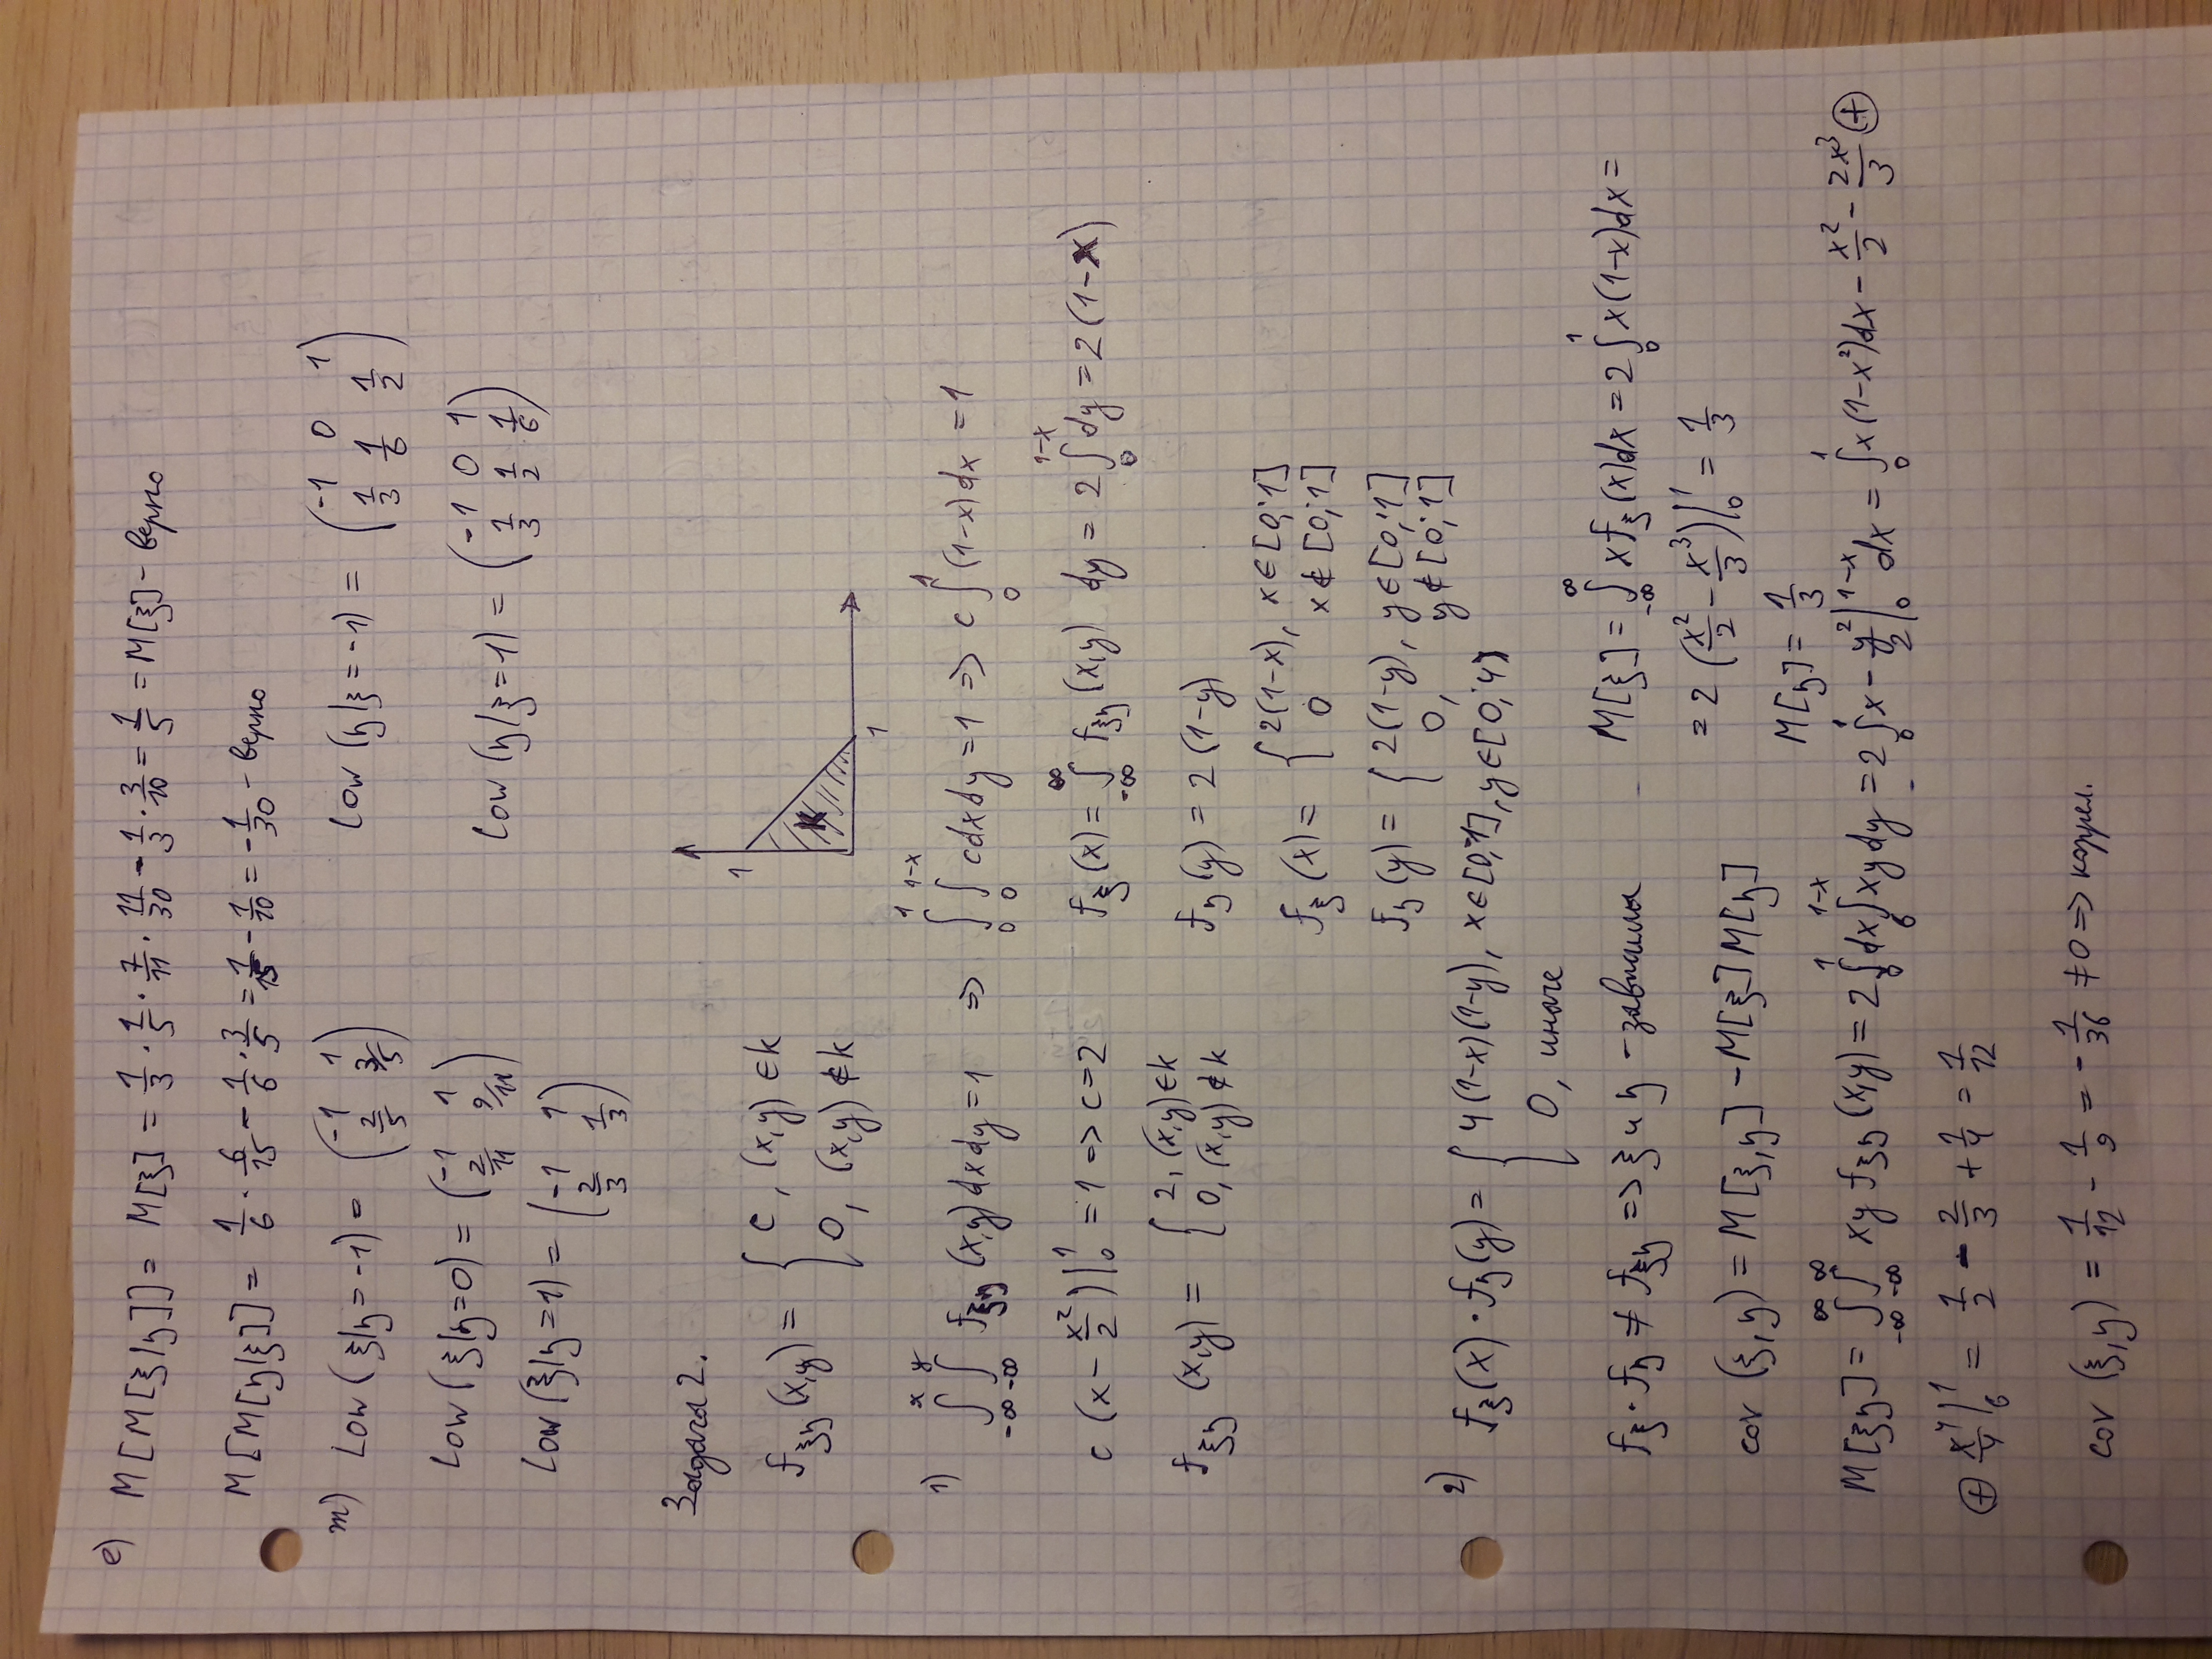 е) M[M[ξ|η]] = M[ξ] = 1/3 · 1/5 · 7/11 · 11/30 - 1/3 · 3/10 = 1/5 = M[ξ] - верно
M[M[η|ξ]] = 1/6 · 6/15 - 1/6 · 3/5 = 1/15 - 1/10 = -1/30 - верно
m) Low (ξ|η = -1) = (-1 1; 2/5 3/5) Low (η|ξ = -1) = (-1 0 1; 1/3 1/6 1/2)
Low (ξ|η = 0) = (-1 1; 2/11 9/11) Low (η|ξ = 1) = (-1 0 1; 1/3 1/2 1/6)
Low (ξ|η = 1) = (-1 1; 2/3 1/3)
Задача 2.
1
f_ξη (x,y) = { c, (x,y) ∈ k
0, (x,y) ∉ k
K
1
1) ∫_{-∞}^{x} ∫_{-∞}^{y} f_ξη (x,y) dx dy = 1 => ∫_0^1 ∫_0^{1-x} c dx dy = 1 => c ∫_0^1 (1-x) dx = 1
c (x - x²/2) |_0^1 = 1 => c = 2 f_ξ (x) = ∫_{-∞}^{∞} f_ξη (x,y) dy = 2 ∫_0^{1-x} dy = 2 (1-x)
f_ξη (x,y) = { 2, (x,y) ∈ k
0, (x,y) ∉ k
f_η (y) = 2 (1-y)
f_ξ (x) = { 2(1-x), x ∈ [0;1]
0 x ∉ [0;1]
f_η (y) = { 2(1-y), y ∈ [0;1]
0, y ∉ [0;1]
2) f_ξ(x) · f_η(y) = { 4(1-x)(1-y), x ∈ [0;1], y ∈ [0;
0, иначе
f_ξ · f_η ≠ f_ξη => ξ и η - зависимы
M[ξ] = ∫_{-∞}^{∞} x f_ξ (x) dx = 2 ∫_0^1 x (1-x) dx =
= 2 (x²/2 - x³/3) |_0^1 = 1/3
cov (ξ, η) = M[ξ, η] - M[ξ] M[η]
M[η] = 1/3
M[ξη] = ∫_{-∞}^{∞} ∫_{-∞}^{∞} xy f_ξη (x,y) = 2 ∫_0^1 dx ∫_0^{1-x} xy dy = 2 ∫_0^1 x - y²/2 |_0^{1-x} dx = ∫_0^1 x (1-x²) dx - x²/2 - 2x³/3 ⊕
⊕ x⁴/4 |_0^1 = 1/2 - 2/3 + 1/4 = 1/12
cov (ξ, η) = 1/12 - 1/9 = -1/36 ≠ 0 => коррел.